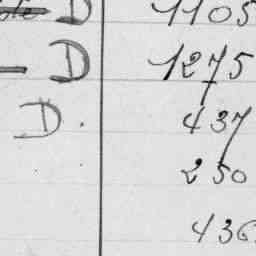 D 1105
— D 1275
D. 437
250
436